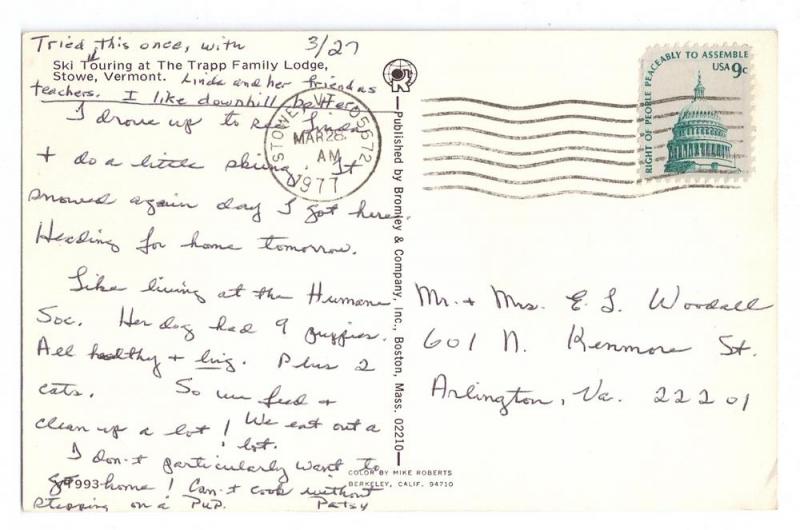 Tried this once, with 3/27
Ski Touring at The Trapp Family Lodge,
Stowe, Vermont. Linda and her friend as
teachers. I like downhill better.
I drove up to see Linda
+ do a little skiing. It
snowed again day I got here.
Heading for home tomorrow.
Like living at the Humane
Soc. Her dog had 9 puppies.
All healthy + big. Plus 2
cats. So we feed +
clean up a lot! We eat out a
lot.
I don't particularly want to
go home! Can't cook without
stepping on a pup. Patsy
P7993
Published by Bromley & Company, Inc., Boston, Mass. 02210
COLOR BY MIKE ROBERTS
BERKELEY, CALIF. 94710
STOWE, VT 05672
MAR 28
AM
1977
RIGHT OF PEOPLE PEACEABLY TO ASSEMBLE
USA 9c
Mr. + Mrs. E. L. Woodall
601 N. Kenmore St.
Arlington, Va. 22201